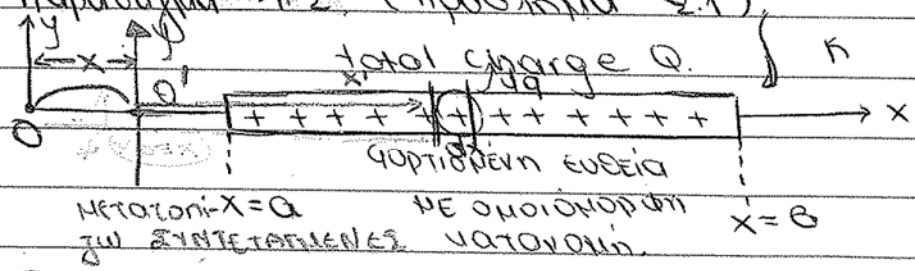 Παράδειγμα 4.2. (Πρόβλημα 2.1)
y
x
total charge Q.
O' x' dq
+ + + + + + + + + + + +
x
O
dx
φορτισμένη ευθεία
μετατοπί- x=a με ομοιόμορφη x=β
ζω ΣΥΝΤΕΤΑΓΜΕΝΕΣ κατανομή.